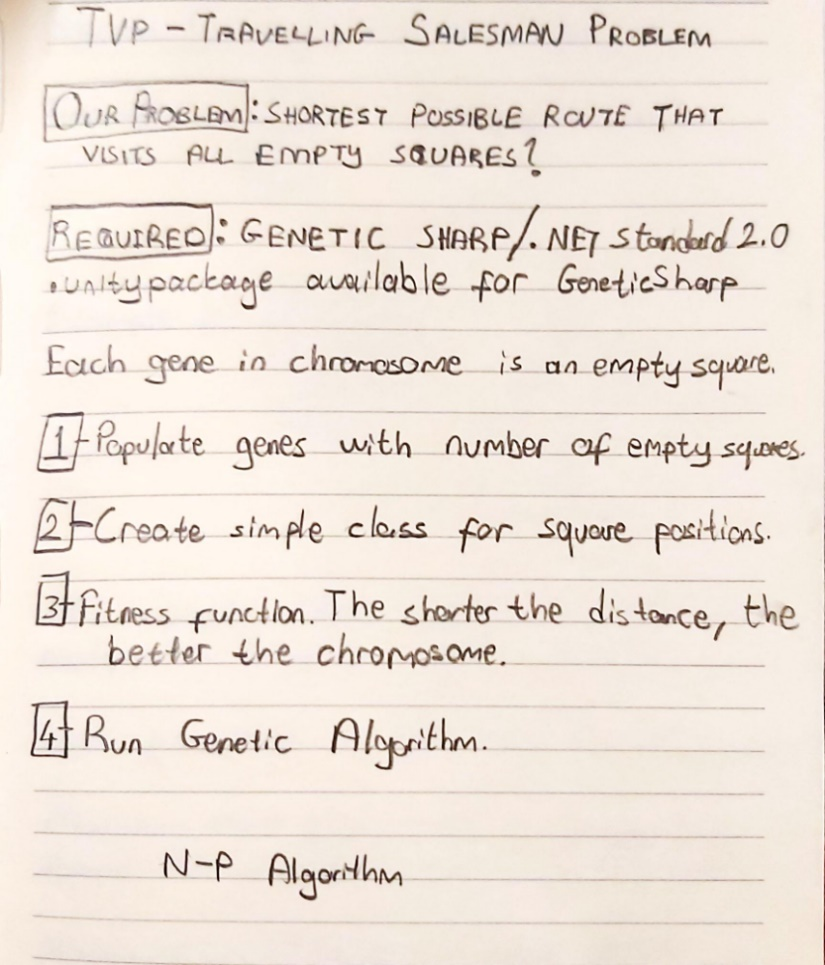 TVP - TRAVELLING SALESMAN PROBLEM
OUR PROBLEM: SHORTEST POSSIBLE ROUTE THAT
VISITS ALL EMPTY SQUARES?
REQUIRED: GENETIC SHARP/.NET Standard 2.0
.unitypackage available for GeneticSharp
Each gene in chromosome is an empty square.
1- Populate genes with number of empty squares.
2- Create simple class for square positions.
3- Fitness function. The shorter the distance, the
better the chromosome.
4- Run Genetic Algorithm.
N-P Algorithm